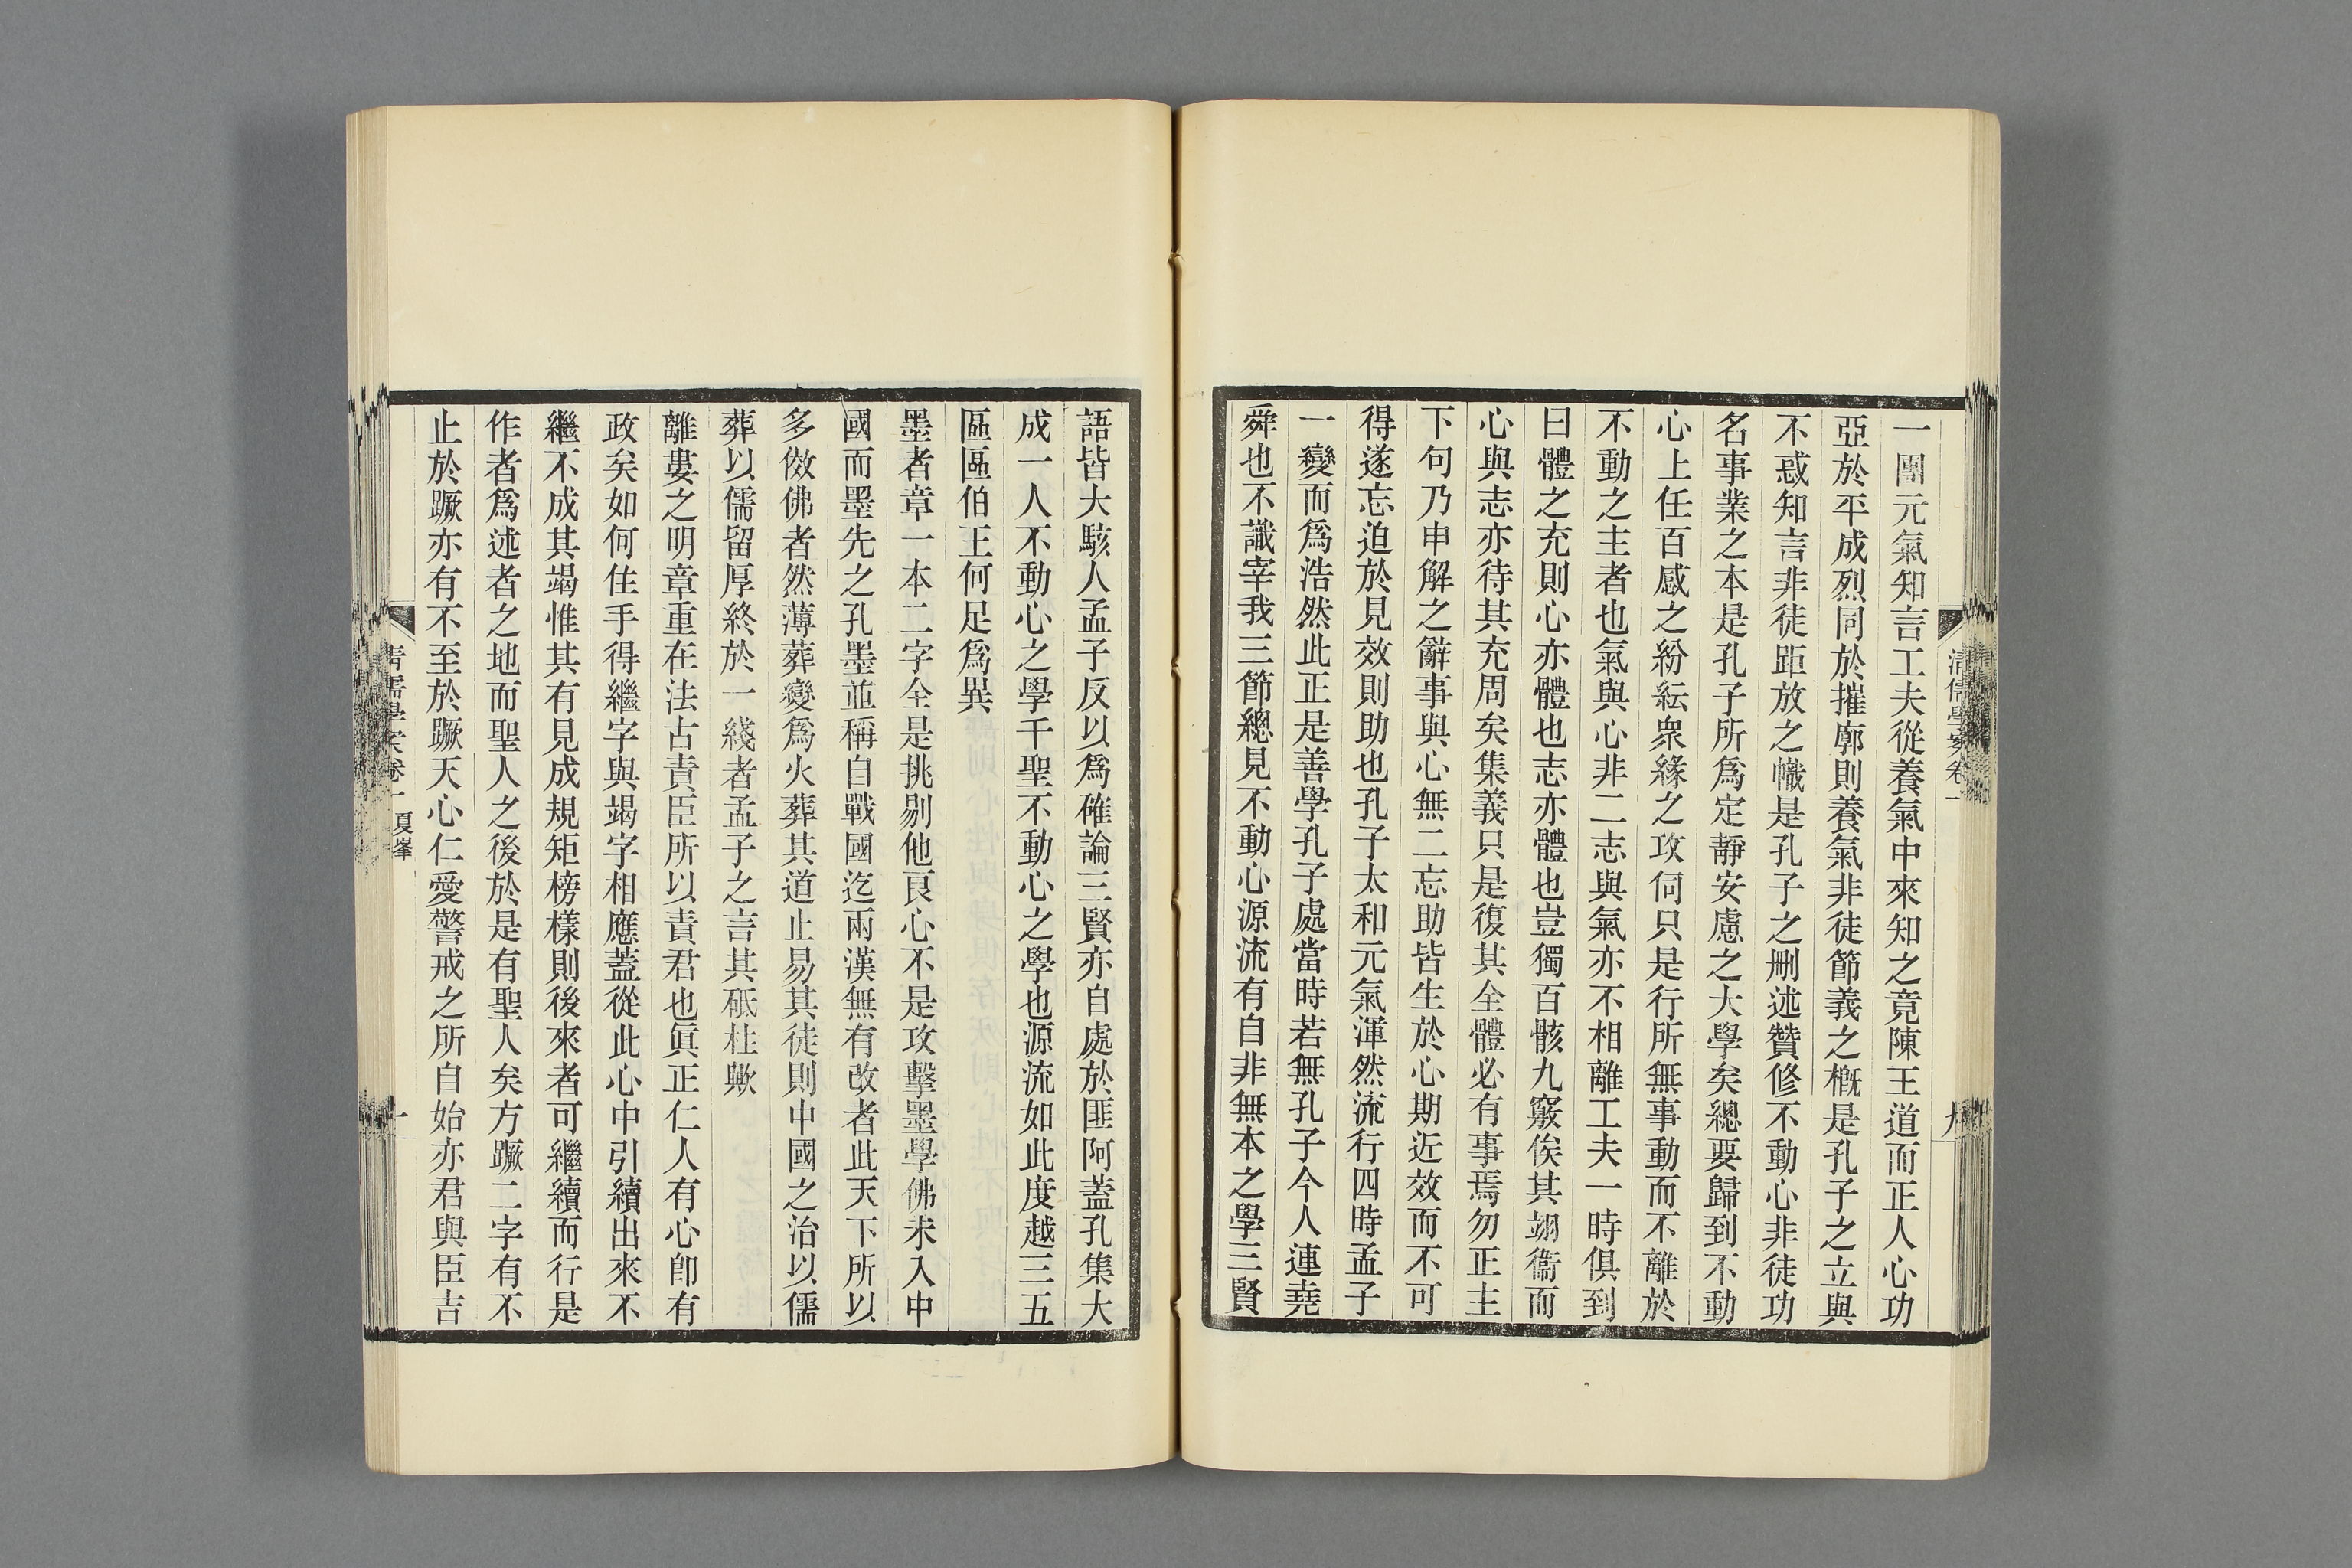 清儒學案卷一
九
一團元氣知言工夫從養氣中來知之竟陳王道而正人心功
亞於平成烈同於摧廓則養氣非徒節義之槪是孔子之立與
不惑知言非徒距放之幟是孔子之刪述贊修不動心非徒功
名事業之本是孔子所爲定靜安慮之大學矣總要歸到不動
心上任百感之紛紜衆緣之攻伺只是行所無事動而不離於
不動之主者也氣與心非二志與氣亦不相離工夫一時俱到
曰體之充則心亦體也志亦體也豈獨百骸九竅俟其翊衞而
心與志亦待其充周矣集義只是復其全體必有事焉勿正主
下句乃申解之辭事與心無二忘助皆生於心期近效而不可
得遂忘迫於見效則助也孔子太和元氣渾然流行四時孟子
一變而爲浩然此正是善學孔子處當時若無孔子今人連堯
舜也不識宰我三節總見不動心源流有自非無本之學三賢
語皆大駭人孟子反以爲確論三賢亦自處於匪阿蓋孔集大
成一人不動心之學千聖不動心之學也源流如此度越三五
區區伯王何足爲異
墨者章一本二字全是挑剔他良心不是攻擊墨學佛未入中
國而墨先之孔墨並稱自戰國迄兩漢無有改者此天下所以
多倣佛者然薄葬變爲火葬其道止易其徒則中國之治以儒
葬以儒留厚終於一綫者孟子之言其砥柱歟
離婁之明章重在法古責臣所以責君也眞正仁人有心卽有
政矣如何住手得繼字與竭字相應蓋從此心中引續出來不
繼不成其竭惟其有見成規矩榜樣則後來者可繼續而行是
作者爲述者之地而聖人之後於是有聖人矣方蹶二字有不
止於蹶亦有不至於蹶天心仁愛警戒之所自始亦君與臣吉
清儒學案卷一 夏峯